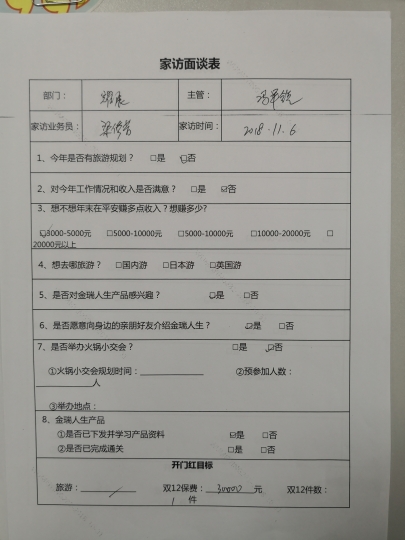 家访面谈表
部门： 主管：
家访业务员： 家访时间： 2018.11.6
1、今年是否有旅游规划？ □是 ☑否
2、对今年工作情况和收入是否满意？ □是 ☑否
3、想不想年末在平安赚多点收入？想赚多少?
☑3000-5000元 □5000-10000元 □5000-10000元 □10000-20000元 □
20000元以上
4、想去哪旅游？ □国内游 □日本游 □英国游
5、是否对金瑞人生产品感兴趣？ ☑是 □否
6、是否愿意向身边的亲朋好友介绍金瑞人生？ ☑是 □否
7、是否举办火锅小交会？ □是 ☑否
①火锅小交会规划时间：____________ ②预参加人数：
____________人
③举办地点：
8、金瑞人生产品
①是否已下发并学习产品资料 ☑是 □否
②是否已完成通关 □是 □否
开门红目标
旅游：____/____ 双12保费：30000元 双12件数：
1 件